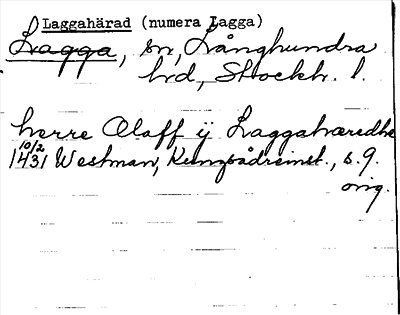 Laggahärad (numera Lagga)
Lagga, sn, Långhundra
hrd, Stockh. l.
herre Olaff ÿ Laggahæredhe
10/2
1431 Westman, Kungsådreinst., s. 9.
orig.